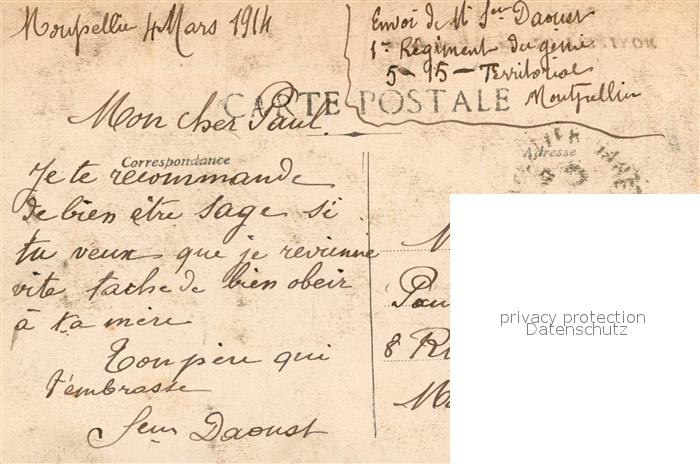 Montpellier 4 Mars 1914
Envoi de Mr Daoust
1er Régiment du génie
5 - 15 - Territorial
Montpellier
CARTE POSTALE
Mon cher Paul.
Correspondance
Adresse
Je te recommande
de bien être sage si
tu veux que je revienne
vite tache de bien obeir
à ta mère
Ton père qui
t'embrasse
Daoust
M
Pau
8 Ru
M
privacy protection
Datenschutz